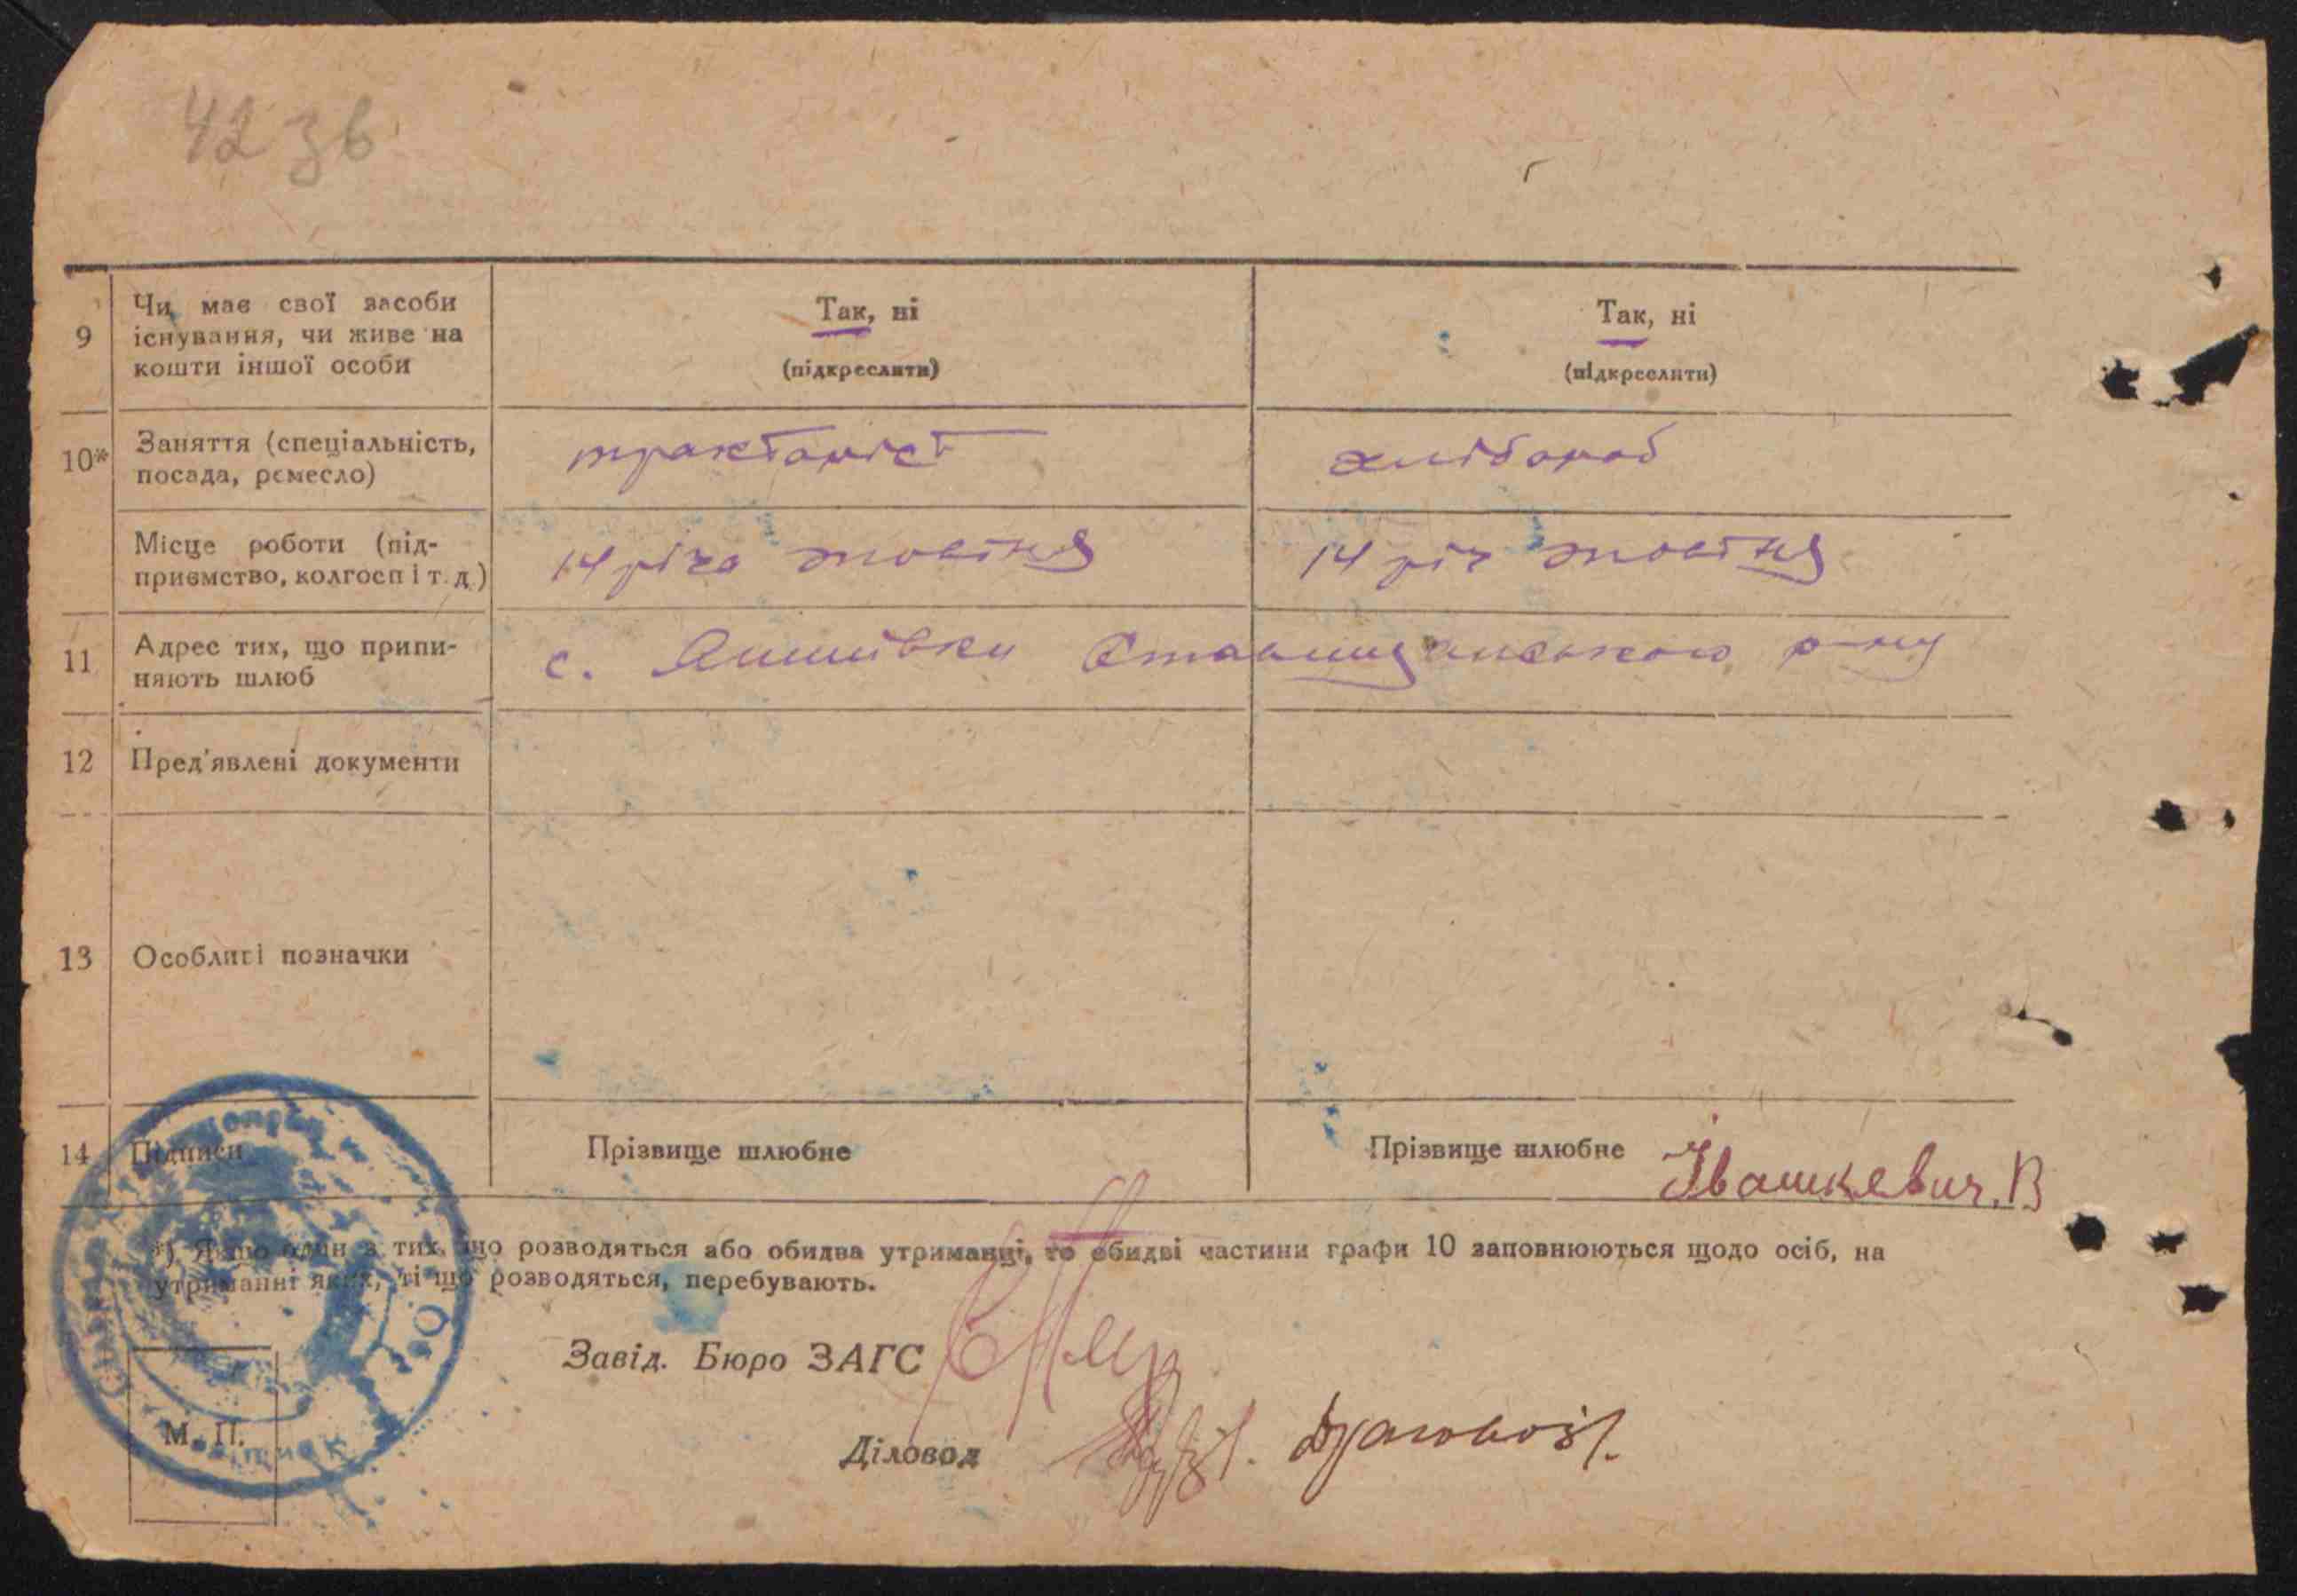 42 зв
9
Чи має свої засоби
існування, чи живе на
кошти іншої особи
Так, ні
(підкреслити)
Так, ні
(підкреслити)
10*
Заняття (спеціальність,
посада, ремесло)
тракторіст
хлібороб
Місце роботи (під-
приємство, колгосп і т. д.)
14 річа жовтня
14 річ жовтня
11
Адрес тих, що припи-
няють шлюб
с. р-ну
12
Пред'явлені документи
13
Особливі позначки
14
Підписи
Прізвище шлюбне
Прізвище шлюбне Івашкевич. В
*) Якщо один з тих, що розводяться або обидва утриманці, то обидві частини графи 10 заповнюються щодо осіб, на
утриманні яких, ті що розводяться, перебувають.
Завід. Бюро ЗАГС
Діловод
М. П.